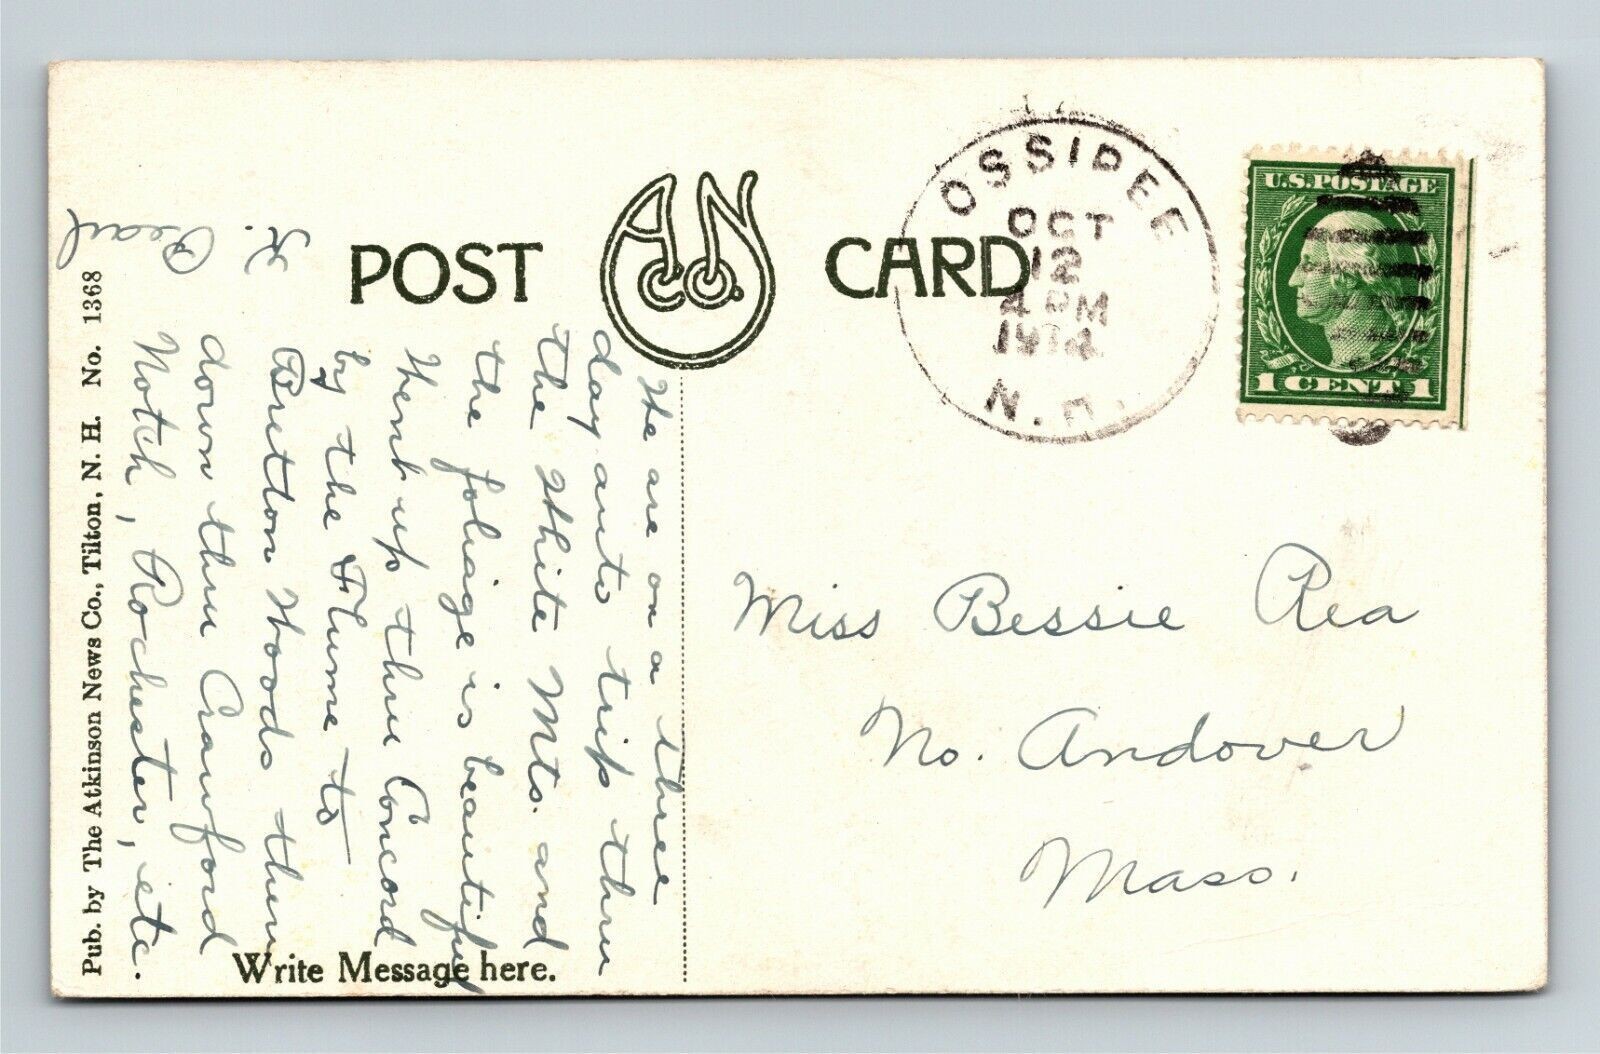 POST CARD
A.N. Co.
OSSIPEE
OCT
12
4 PM
1912
N.H.
U.S. POSTAGE
1 CENT 1
We are on a three
day auto trip thru
the White Mts. and
the foliage is beautiful
Went up thru Concord
by the Flume to
Bretton Woods then
down thru Crawford
Notch, Rochester, etc.
Pearl
Miss Bessie Rea
No. Andover
Mass.
Pub. by The Atkinson News Co., Tilton, N. H. No. 1368
Write Message here.